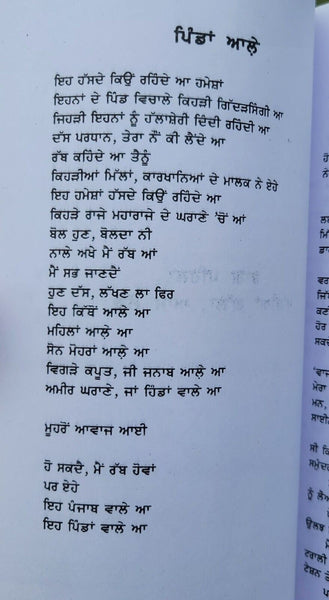 ਪਿੰਡਾਂ ਆਲ਼ੇ
ਇਹ ਹੱਸਦੇ ਕਿਉਂ ਰਹਿੰਦੇ ਆ ਹਮੇਸ਼ਾਂ
ਇਹਨਾਂ ਦੇ ਪਿੰਡ ਵਿਚਾਲੇ ਕਿਹੜੀ ਗਿੱਦੜਸਿੰਗੀ ਆ
ਜਿਹੜੀ ਇਹਨਾਂ ਨੂੰ ਹੱਲਾਸ਼ੇਰੀ ਦਿੰਦੀ ਰਹਿੰਦੀ ਆ
ਦੱਸ ਪਰਧਾਨ, ਤੇਰਾ ਨੌਂ ਕੀ ਲੈਂਦੇ ਆ
ਰੱਬ ਕਹਿੰਦੇ ਆ ਤੈਨੂੰ
ਕਿਹੜੀਆਂ ਮਿੱਲਾਂ, ਕਾਰਖਾਨਿਆਂ ਦੇ ਮਾਲਕ ਨੇ ਏਹੇ
ਇਹ ਹਮੇਸ਼ਾਂ ਹੱਸਦੇ ਕਿਉਂ ਰਹਿੰਦੇ ਆ
ਕਿਹੜੇ ਰਾਜੇ ਮਹਾਰਾਜੇ ਦੇ ਘਰਾਣੇ 'ਚੋਂ ਆਂ
ਬੋਲ ਹੁਣ, ਬੋਲਦਾ ਨੀ
ਨਾਲੇ ਅਖੇ ਮੈਂ ਰੱਬ ਆਂ
ਮੈਂ ਸਭ ਜਾਣਦੈਂ
ਹੁਣ ਦੱਸ, ਲੱਖਣ ਲਾ ਫਿਰ
ਇਹ ਕਿੱਥੋਂ ਆਲੇ ਆ
ਮਹਿਲਾਂ ਆਲ਼ੇ ਆ
ਸੋਨ ਮੋਹਰਾਂ ਆਲ਼ੇ ਆ
ਵਿਗੜੇ ਕਪੂਤ, ਜੀ ਜਨਾਬ ਆਲੇ ਆ
ਅਮੀਰ ਘਰਾਣੇ, ਜਾਂ ਹਿੰਡਾਂ ਵਾਲੇ ਆ
ਮੂਹਰੋਂ ਆਵਾਜ ਆਈ
ਹੋ ਸਕਦੈ, ਮੈਂ ਰੱਬ ਹੋਵਾਂ
ਪਰ ਏਹੇ
ਇਹ ਪੰਜਾਬ ਵਾਲੇ ਆ
ਇਹ ਪਿੰਡਾਂ ਵਾਲੇ ਆ